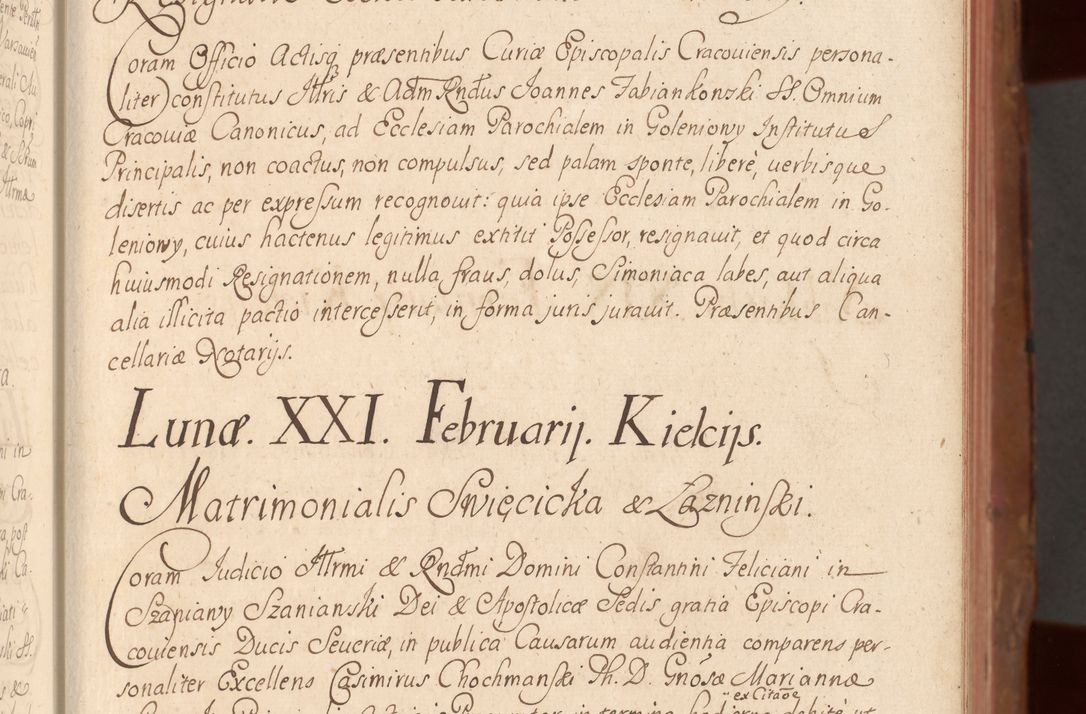 Coram Officio Actisq præsentibus Curiæ Episcopalis Cracouiensis persona-
liter constitutus Illris & Adm Rndus Joannes Fabiankonski SS. Omnium
Cracouiæ Canonicus, ad Ecclesiam Parochialem in Goleniowy Institutus
Principalis, non coactus, non compulsus, sed palam sponte, liberè, uerbisque
disertis ac per expressum recognouit: quia ipse Ecclesiam Parochialem in Go-
leniowy, cuius hactenus legitimus extitit Possessor, resignauit, et quod circa
huiusmodi Resignationem, nulla fraus, dolus, Simoniaca labes, aut aliqua
alia illicita pactio intercesserit, in forma juris jurauit. Præsentibus Can-
cellariæ Notarijs.
Lunæ. XXI. Februarij. Kielcijs.
Matrimonialis Swięcicka & Łazninski.
Coram Judicio Illrmi & Rndmi Domini Constantini Feliciani in
Szaniawy Szanianski Dei & Apostolicæ Sedis gratia Episcopi Cra-
couiensis Ducis Seueriæ, in publica Causarum audientia comparens per-
sonaliter Excellens Casimirus Chochmanski Ph. D. Gnosæ Mariannæ
ex Citaoe